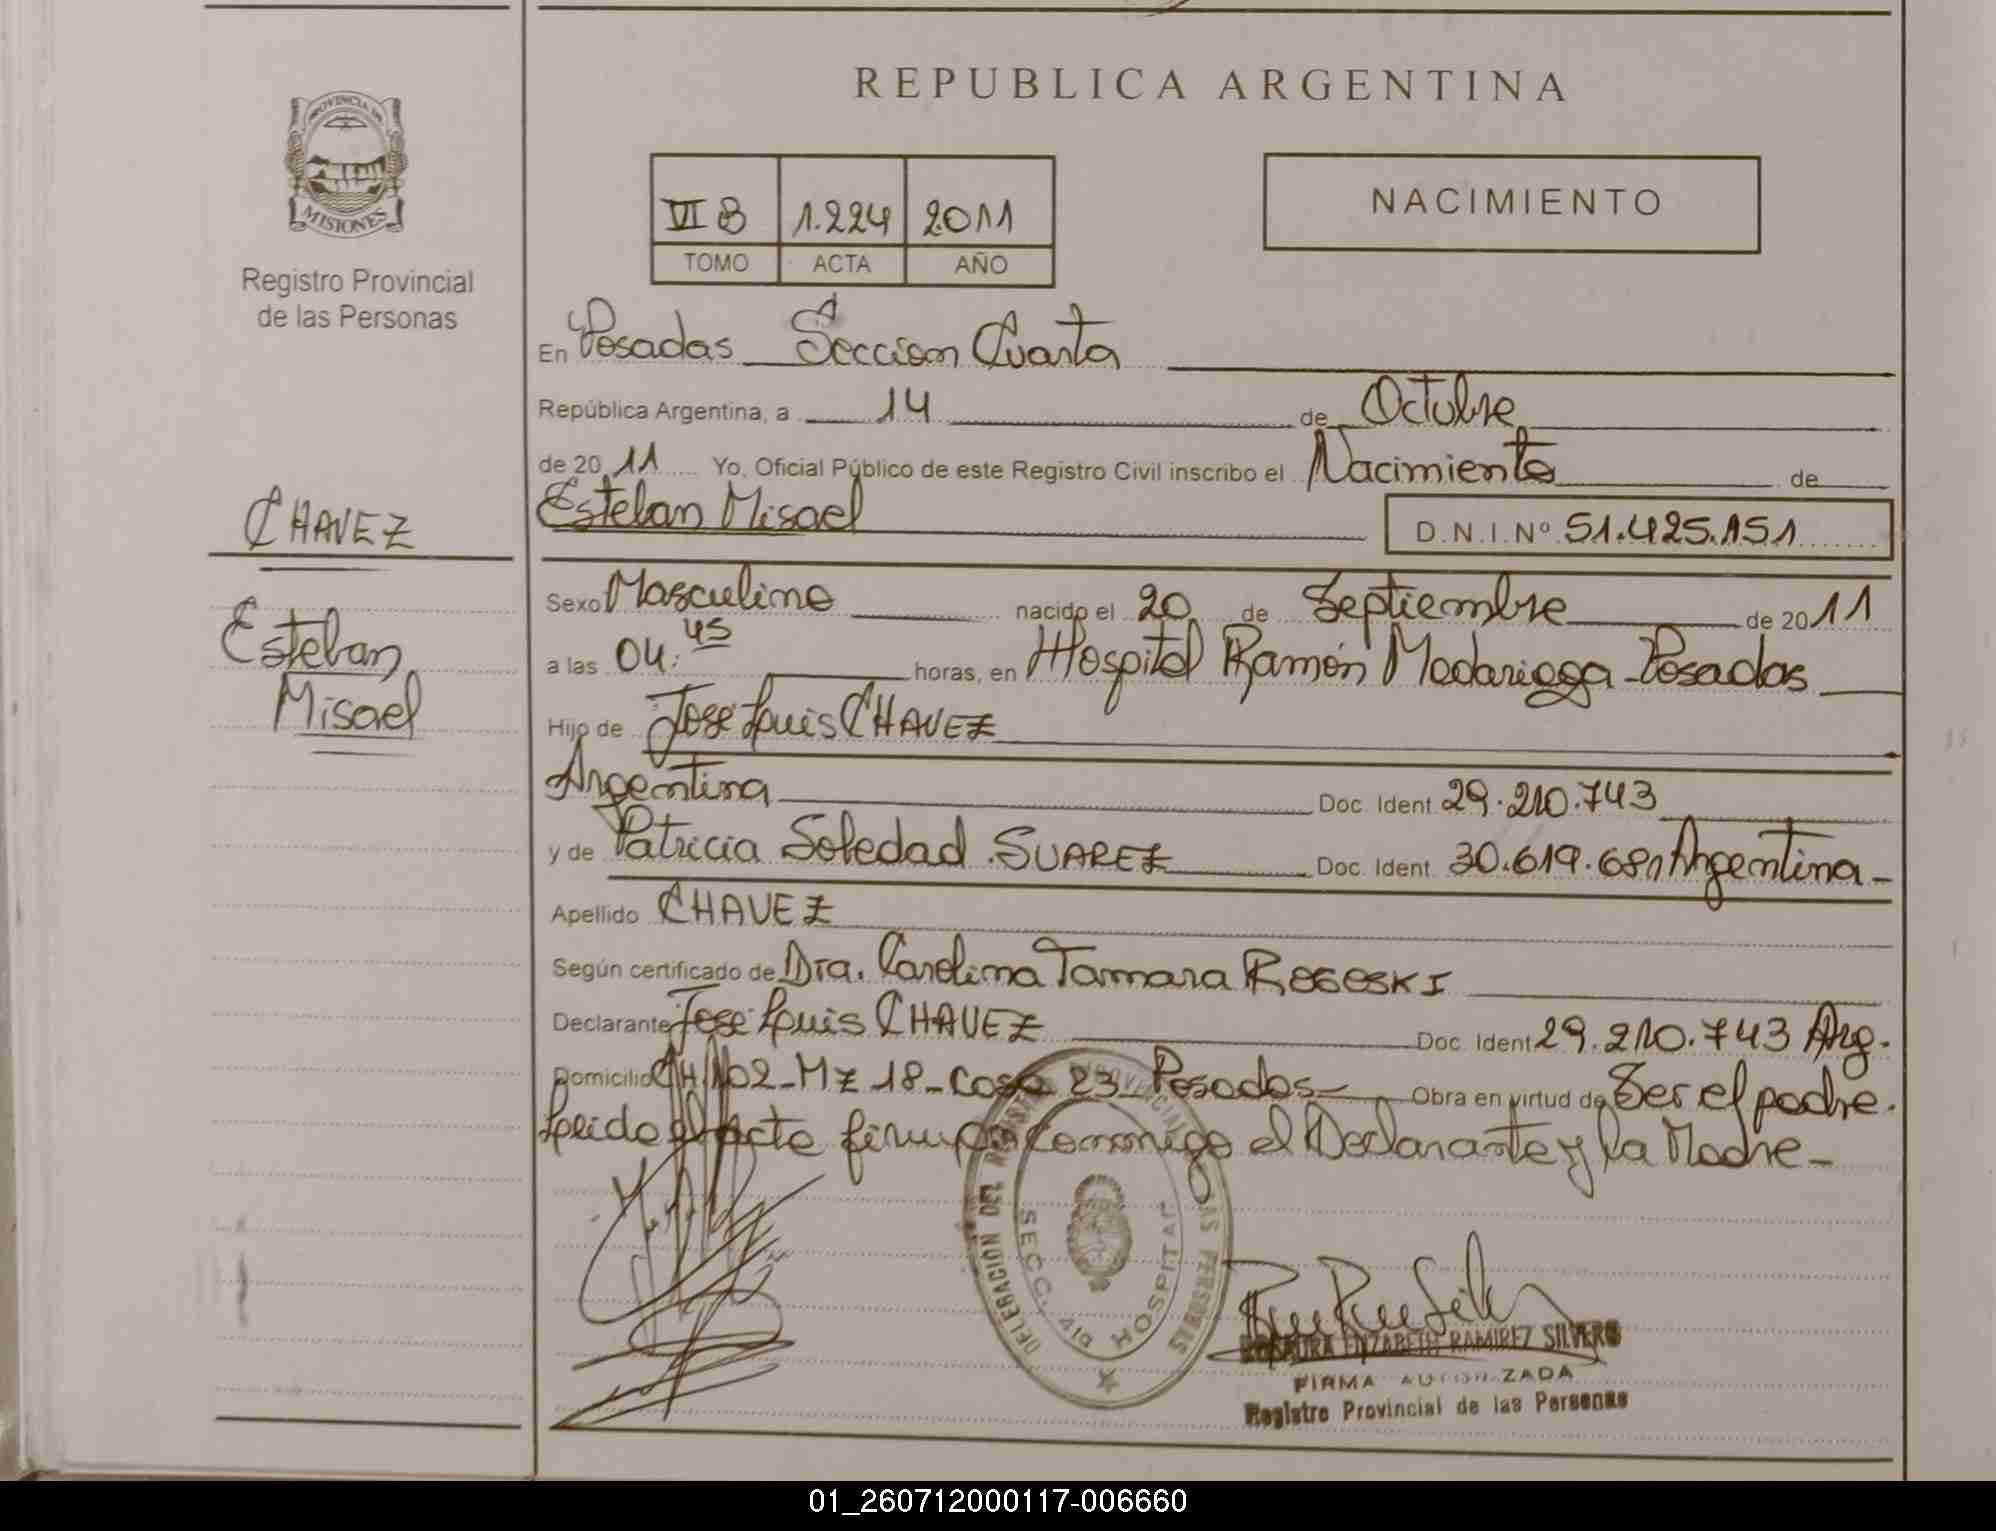 REPUBLICA ARGENTINA
PROVINCIA DE
MISIONES
Registro Provincial
de las Personas
VI B 1.224 2011
TOMO ACTA AÑO
NACIMIENTO
En Posadas Seccion Cuarta
República Argentina, a 14 de Octubre
de 20 11 Yo, Oficial Público de este Registro Civil inscribo el Nacimiento de
Esteban Misael
D.N.I.Nº 51.425.151
CHAVEZ
Esteban
Misael
Sexo Masculino nacido el 20 de Septiembre de 20 11
a las 04:45 horas, en Hospital Ramón Madariaga - Posadas
Hijo de José Luis CHAVEZ
Argentina Doc. Ident. 29.210.743
y de Patricia Soledad SUAREZ Doc. Ident. 30.619.681 Argentina -
Apellido CHAVEZ
Según certificado de Dra. Carolina Tamara ROGOSKI
Declarante José Luis CHAVEZ Doc. Ident. 29.210.743 Arg.
Domicilio CH. 102 - Mz 18 - Casa 23 - Posadas - Obra en virtud de Ser el padre.
Leido el acta firman conmigo el Declarante y la Madre -
SECC. 4ta HOSPITAL
ROSAURA ELIZABETH RAMIREZ SILVERO
FIRMA AUTORIZADA
Registro Provincial de las Personas
01_260712000117-006660